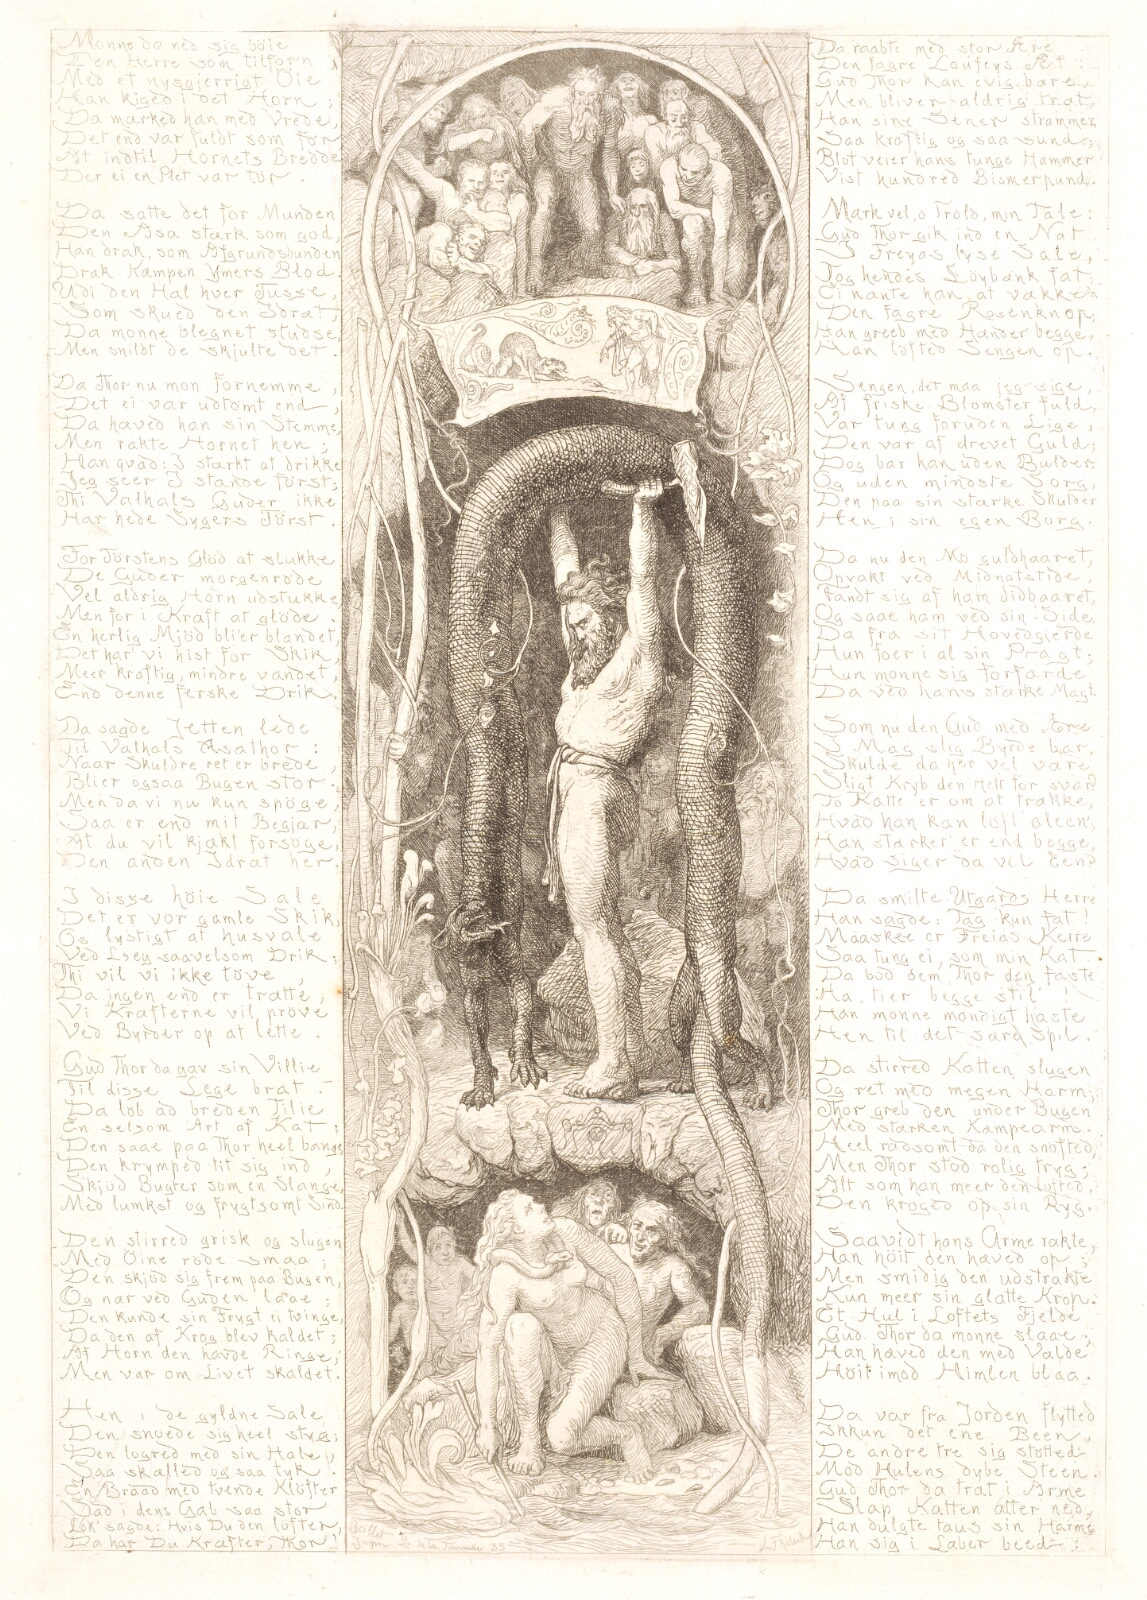 Monne da ned sig böie
Den Herre som tilforn,
Med et nysgjerrigt Öie
Han kiged i det Horn;
Da marked han med Vrede,
Det end var fuldt som för
At indtil Hornets Bredde
Der ei en Plet var tör.
Da satte det for Munden
Den Asa stærk som god,
Han drak, som Afgrundsbunden
Drak Kæmpen Ymers Blod.
Udi den Hal hver Tusse,
Som skued den Idræt,
Da monne blegnet studse
Men snildt de skjulte det.
Da Thor nu mon fornemme,
Det ei var udtömt end,
Da hæved han sin Stemme
Men rakte Hornet hen;
Han qvad: I stærkt at drikke
Jeg seer I stande först,
Thi Valhals Guder ikke
Har hede Sygers Törst.
For Törstens Glöd at slukke
De Guder morgenröde
Vel aldrig Horn udstukke
Men for i Kraft at glöde.
En herlig Mjöd bli'er blandet,
Det har vi hist for Skik,
Meer kraftig, mindre vandet,
End denne ferske Drik.
Da sagde Jetten lede
Til Valhals Asathor:
Naar Skuldre ret er brede,
Blier ogsaa Bugen stor.
Men da vi nu kun spöge,
Saa er end mit Begjær,
At du vil kjækt forsöge,
Den anden Idræt her.
I disse höie Sale
Det er vor gamle Skik,
Os lystigt at husvale
Ved Leeg saavelsom Drik;
Thi vil vi ikke töve,
Da ingen end er trætte,
Vi Kræfterne vil pröve
Ved Byrder op at lette.
Gud Thor da gav sin Villie
Til disse Lege brat
Da löb ad breden Tilie
En selsom Art af Kat;
Den saae paa Thor heel bange
Den krymped tit sig ind,
Skjöd Bugter som en Slange,
Med lumskt og frygtsomt Sind.
Den stirred grisk og slugen
Med Öine röde smaa;
Den skjöd sig frem paa Bugen,
Og nær ved Guden laae;
Den kunde sin Frygt ei tvinge,
Da den af Krog blev kaldet;
Af Horn den havde Ringe,
Men var om Livet skaldet.
Hen i de gyldne Sale
Den snoede sig heel styg;
Den logred med sin Hale,
Saa skælled og saa tyk.
En Braad med tvende Klöfter
Sad i dens Gab saa stor
Lok' sagde: Hvis Du den löfter,
Da har Du Kræfter, Thor!
Da raabte med stor Ære
Den fagre Laufeys Æt:
Gud Thor kan evig bære,
Men bliver aldrig træt,
Han sine Sener strammer,
Saa kraftig og saa sund;
Blot veier hans tunge Hammer
Vist hundred Bismerpund.
Mærk vel, o Trold, min Tale:
Gud Thor gik ind en Nat
I Freyas lyse Sale,
Tog hendes Löybænk fat,
Ei nænte han at vække
Den fagre Rosenknop;
Han greeb med Hænder begge,
Han löfted Sengen op.
Sengen, det maa jeg sige,
Af friske Blomster fuld,
Var tung foruden Lige,
Den var af drevet Guld;
Dog bar han uden Bulder
Og uden mindste Sorg,
Den paa sin stærke Skulder
Hen i sin egen Borg.
Da nu den Mö guldhaaret,
Opvakt ved Midnatstide,
Fandt sig af ham didbaaret,
Og saae ham ved sin Side,
Da fra sit Hovedgjerde
Hun foer i al sin Pragt;
Hun monne sig forfærde
Da ved hans stærke Magt.
Som nu den Gud med Ære
I Mag slig Byrde bar,
Skulde da her vel være
Sligt Kryb den Helt for svar?
To Katte er om at trække,
Hvad han kan löft' aleen;
Han stærker er end begge,
Hvad siger da vel Een?
Da smilte Utgards Herre
Han sagde: Tag kun fat!
Maaskee er Freias Kerre
Saa tung ei, som min Kat.
Da bød dem Thor den faste
Ha tier begge stil!
Han monne mandigt haste
Hen til det sære Spil.
Da stirred Katten slugen
Og ret med megen Harm;
Thor greb den under Bugen
Med stærken Kæmpearm.
Heel rædsomt da den snofted,
Men Thor stod rolig tryg;
Alt som han meer den lofted,
Den kroged op sin Ryg.
Saavidt hans Arme rakte,
Han höit den hæved op;
Men smidig den udstrakte
Kun meer sin glatte Krop.
Et Hul i Loftets Fjelde
Gud Thor da monne slaae,
Han hæved den med Vælde
Höit imod Himlen blaa.
Da var fra Jorden flytted
Skkun det ene Been,
De andre tre sig stötted
Mod Hulens dybe Steen.
Gud Thor da træt i Arme
Slap Katten atter ned,
Han dulgte taus sin Harme
Han sig i Læber beed.